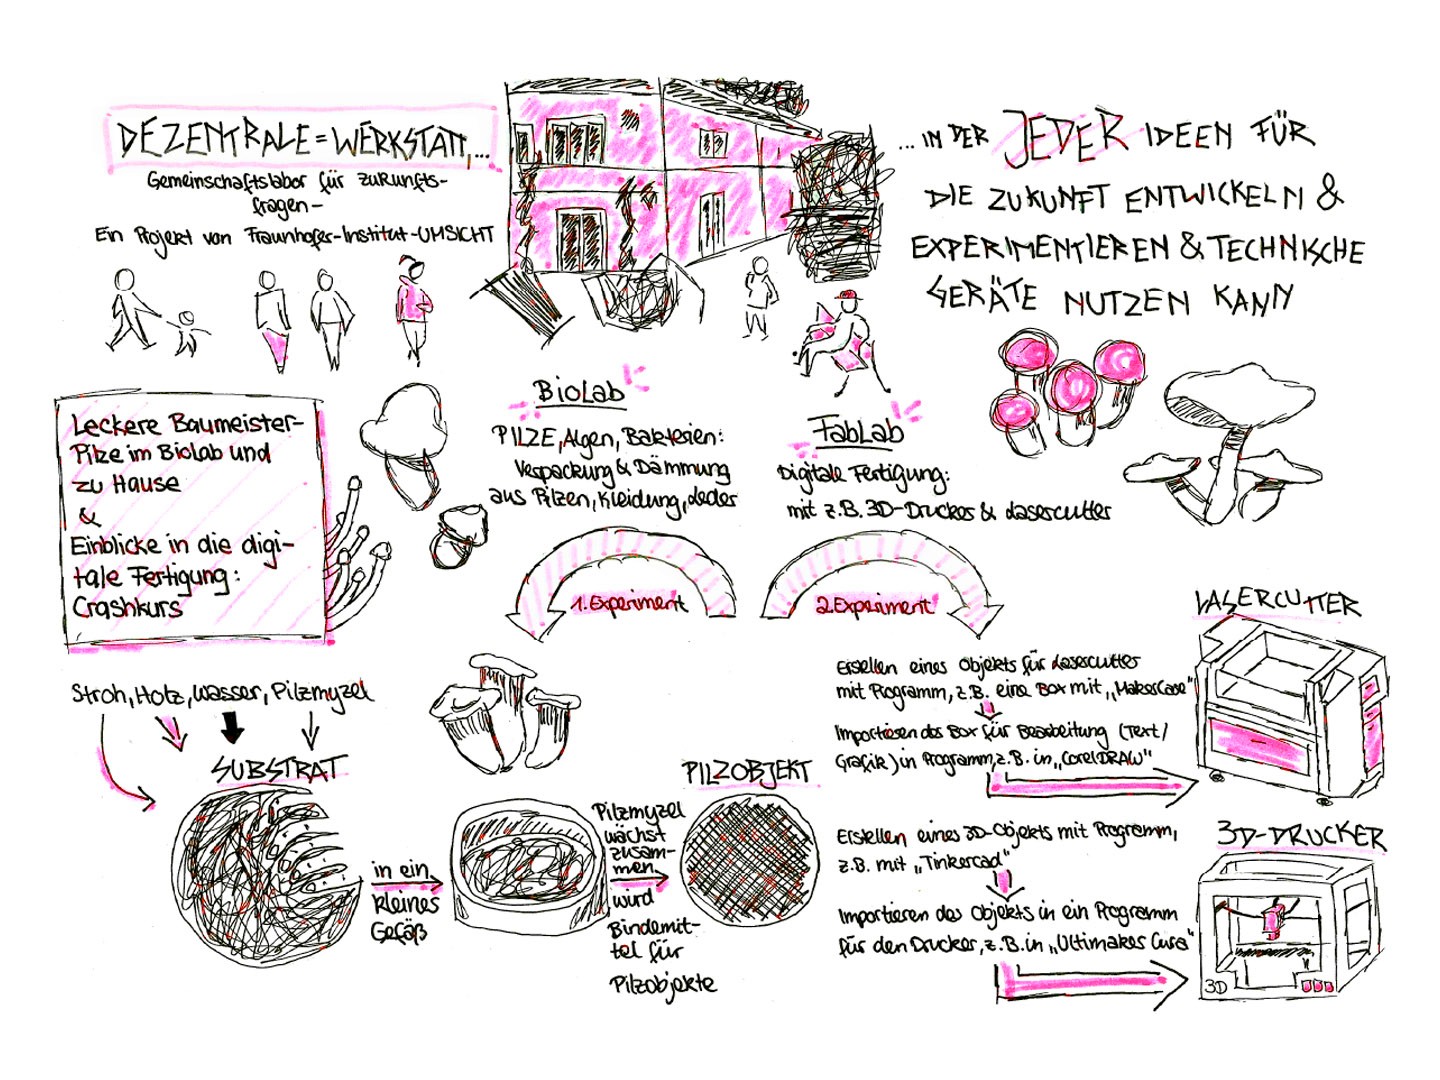 DEZENTRALE = WERKSTATT,...
Gemeinschaftslabor für Zukunfts-
fragen-
Ein Projekt von Fraunhofer-Institut-UMSICHT
... IN DER JEDER IDEEN FÜR
DIE ZUKUNFT ENTWICKELN &
EXPERIMENTIEREN & TECHNISCHE
GERÄTE NUTZEN KANN
Leckere Baumeister-
Pilze im BioLab und
zu Hause
&
Einblicke in die digi-
tale Fertigung:
Crashkurs
BioLab
PILZE, Algen, Bakterien:
Verpackung & Dämmung
aus Pilzen, Kleidung, Leder
FabLab
Digitale Fertigung:
mit z.B. 3D-Drucker & Lasercutter
1. Experiment
2. Experiment
Stroh, Holz, Wasser, Pilzmyzel
SUBSTRAT
in ein
kleines
Gefäß
Pilzmyzel
wächst
zusam-
men,
wird
Bindemit-
tel für
Pilzobjekte
PILZOBJEKT
Erstellen eines Objekts für Lasercutter
mit Programm, z.B. eine Box mit „MakerCase"
Importieren der Box für Bearbeitung (Text/
Grafik) in Programm, z.B. in „CorelDRAW"
LASERCUTTER
Erstellen eines 3D-Objekts mit Programm,
z.B. mit „Tinkercad"
Importieren des Objekts in ein Programm
für den Drucker, z.B. in „Ultimaker Cura"
3D-DRUCKER
3D